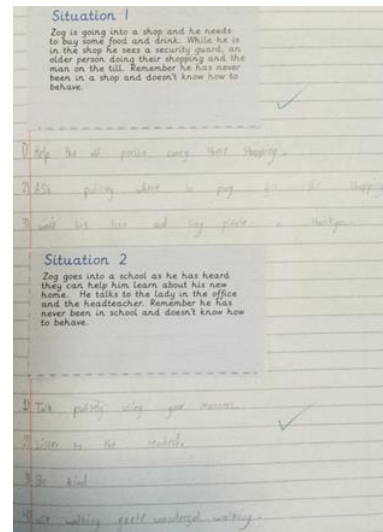 Situation 1
Zog is going into a shop and he needs
to buy some food and drink. While he is
in the shop he sees a security guard, an
older person doing their shopping and the
man on the till. Remember he has never
been in a shop and doesn't know how to
behave.
1) Help the old person carry their shopping.
2) Ask politely where to pay for his shopping
3) wait his turn and say please thankyou
Situation 2
Zog goes into a school as he has heard
they can help him learn about his new
home. He talks to the lady in the office
and the headteacher. Remember he has
never been in school and doesn't know how
to behave.
1) Talk politely using good manners.
2) Listen to the
3) Be kind
4) use walking wonderful